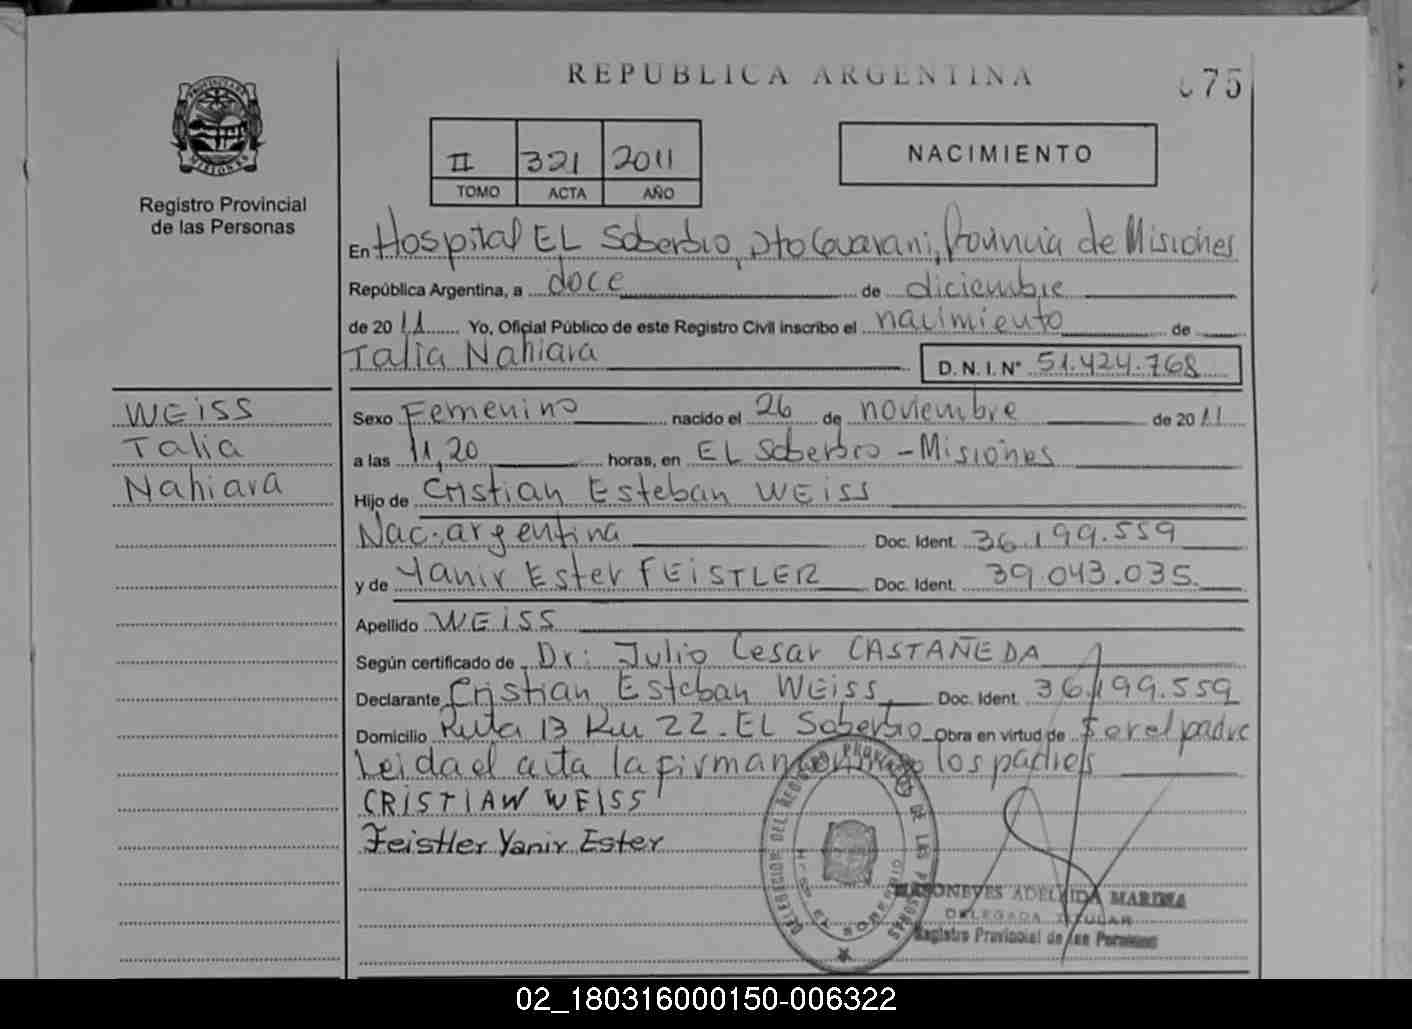 REPUBLICA ARGENTINA
75
PROVINCIA DE
MISIONES
Registro Provincial
de las Personas
II 321 2011
TOMO ACTA AÑO
NACIMIENTO
En Hospital EL Soberbio, Dto Guarani, Provincia de Misiones
República Argentina, a doce de diciembre
de 2011 Yo, Oficial Público de este Registro Civil inscribo el nacimiento de
Talia Nahiara D.N.I. N° 51.424.768
WEISS
Talia
Nahiara
Sexo Femenino nacido el 26 de noviembre de 2011
a las 11,20 horas, en EL Soberbio - Misiones
Hijo de Cristian Esteban WEISS
Nac. argentina Doc. Ident. 36.199.559
y de Yanir Ester FEISTLER Doc. Ident. 39.043.035.
Apellido WEISS
Según certificado de Dr: Julio Cesar CASTAÑEDA
Declarante Cristian Esteban WEISS Doc. Ident. 36.199.559
Domicilio Ruta 13 Km 22 - EL Soberbio Obra en virtud de Ser el padre
Leida el acta la firman los padres
CRISTIAN WEISS
Feistler Yanir Ester
DELEGACION DEL REGISTRO PROVINCIAL DE LAS PERSONAS
EL SOBERBIO
ADELAIDA MARINA
DELEGADA TITULAR
Registro Provincial de las Personas
02_180316000150-006322